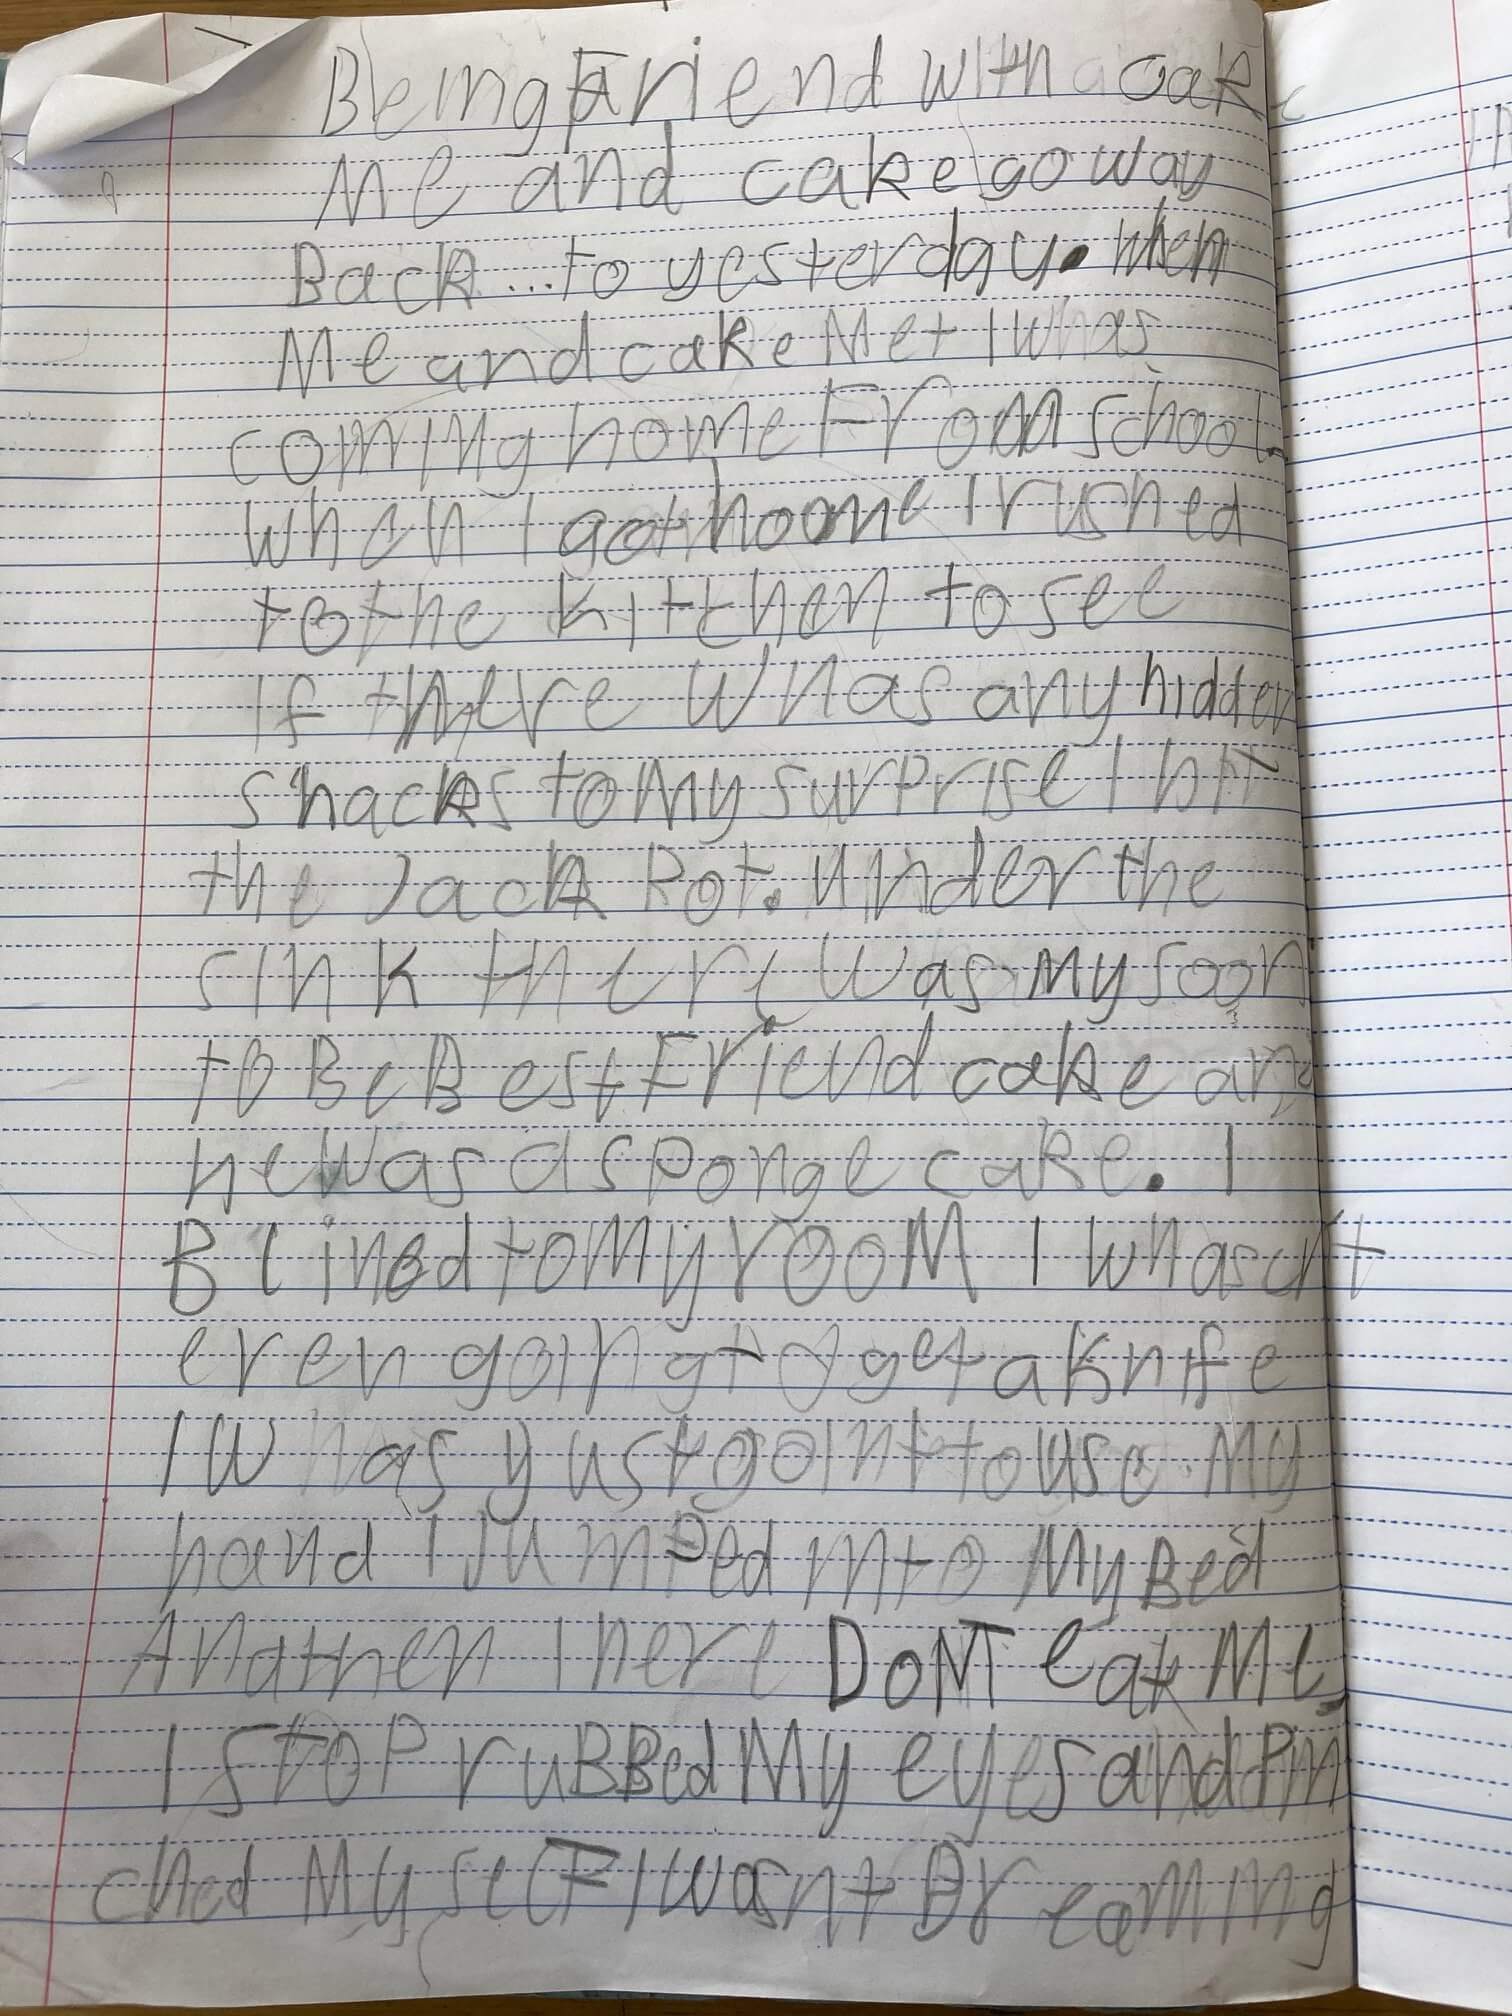 Being Friend with a cake
Me and cake go way
Back...to yesterday. When
Me and cake Met I whas
coming home From school.
When I got home I rushed
to the kitthen to see
if there whas any hidden
snacks to My surprise I hit
the Jack Pot. under the
sink there was My soon
to Be Best Friend cake and
he was a sponge cake. I
B lined to My rooM I whasent
even going to get a knife
I whas yust goint to use My
hand I Jumped into My Bed
And then I here DoNT eat Me
I stoP ruBBed My eyes and Pin
ched My selF I wasnt Dreaming